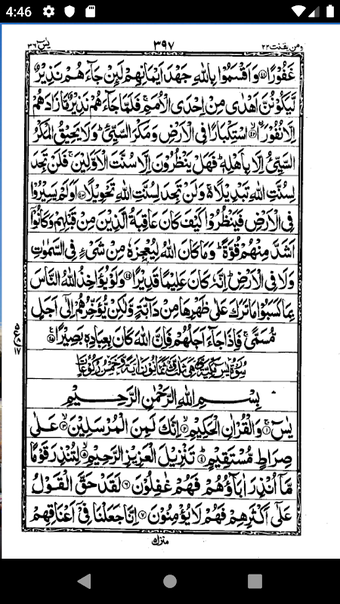 4:46
یٰسٓ ٣٦
٣٩٧
ومن یقنت ٢٢
غَفُوْرًا ۞ وَاَقْسَمُوْا بِاللّٰهِ جَهْدَ اَيْمَانِهِمْ لَىِٕنْ جَآءَهُمْ نَذِيْرٌ
لَّيَكُوْنُنَّ اَهْدٰى مِنْ اِحْدَى الْاُمَمِ ۚ فَلَمَّا جَآءَهُمْ نَذِيْرٌ مَّا زَادَهُمْ
اِلَّا نُفُوْرَا ۞ اسْتِكْبَارًا فِى الْاَرْضِ وَمَكْرَ السَّيِّئِ ؕ وَلَا يَحِيْقُ الْمَكْرُ
السَّيِّئُ اِلَّا بِاَهْلِهٖ ؕ فَهَلْ يَنْظُرُوْنَ اِلَّا سُنَّتَ الْاَوَّلِيْنَ ۚ فَلَنْ تَجِدَ
لِسُنَّتِ اللّٰهِ تَبْدِيْلًا ۚ وَلَنْ تَجِدَ لِسُنَّتِ اللّٰهِ تَحْوِيْلًا ۞ اَوَلَمْ يَسِيْرُوْا
فِى الْاَرْضِ فَيَنْظُرُوْا كَيْفَ كَانَ عَاقِبَةُ الَّذِيْنَ مِنْ قَبْلِهِمْ وَكَانُوْۤا
اَشَدَّ مِنْهُمْ قُوَّةً ؕ وَمَا كَانَ اللّٰهُ لِيُعْجِزَهٗ مِنْ شَىْءٍ فِى السَّمٰوٰتِ
وَلَا فِى الْاَرْضِ ؕ اِنَّهٗ كَانَ عَلِيْمًا قَدِيْرًا ۞ وَلَوْ يُؤَاخِذُ اللّٰهُ النَّاسَ
بِمَا كَسَبُوْا مَا تَرَكَ عَلٰى ظَهْرِهَا مِنْ دَآبَّةٍ وَّلٰكِنْ يُّؤَخِّرُهُمْ اِلٰٓى اَجَلٍ
مُّسَمًّى ۚ فَاِذَا جَآءَ اَجَلُهُمْ فَاِنَّ اللّٰهَ كَانَ بِعِبَادِهٖ بَصِيْرًا ۞
بِسْمِ اللّٰهِ الرَّحْمٰنِ الرَّحِيْمِ
يٰسٓ ۞ وَالْقُرْاٰنِ الْحَكِيْمِ ۞ اِنَّكَ لَمِنَ الْمُرْسَلِيْنَ ۞ عَلٰى
صِرَاطٍ مُّسْتَقِيْمٍ ۞ تَنْزِيْلَ الْعَزِيْزِ الرَّحِيْمِ ۞ لِتُنْذِرَ قَوْمًا
مَّاۤ اُنْذِرَ اٰبَآؤُهُمْ فَهُمْ غٰفِلُوْنَ ۞ لَقَدْ حَقَّ الْقَوْلُ
عَلٰٓى اَكْثَرِهِمْ فَهُمْ لَا يُؤْمِنُوْنَ ۞ اِنَّا جَعَلْنَا فِىْۤ اَعْنَاقِهِمْ